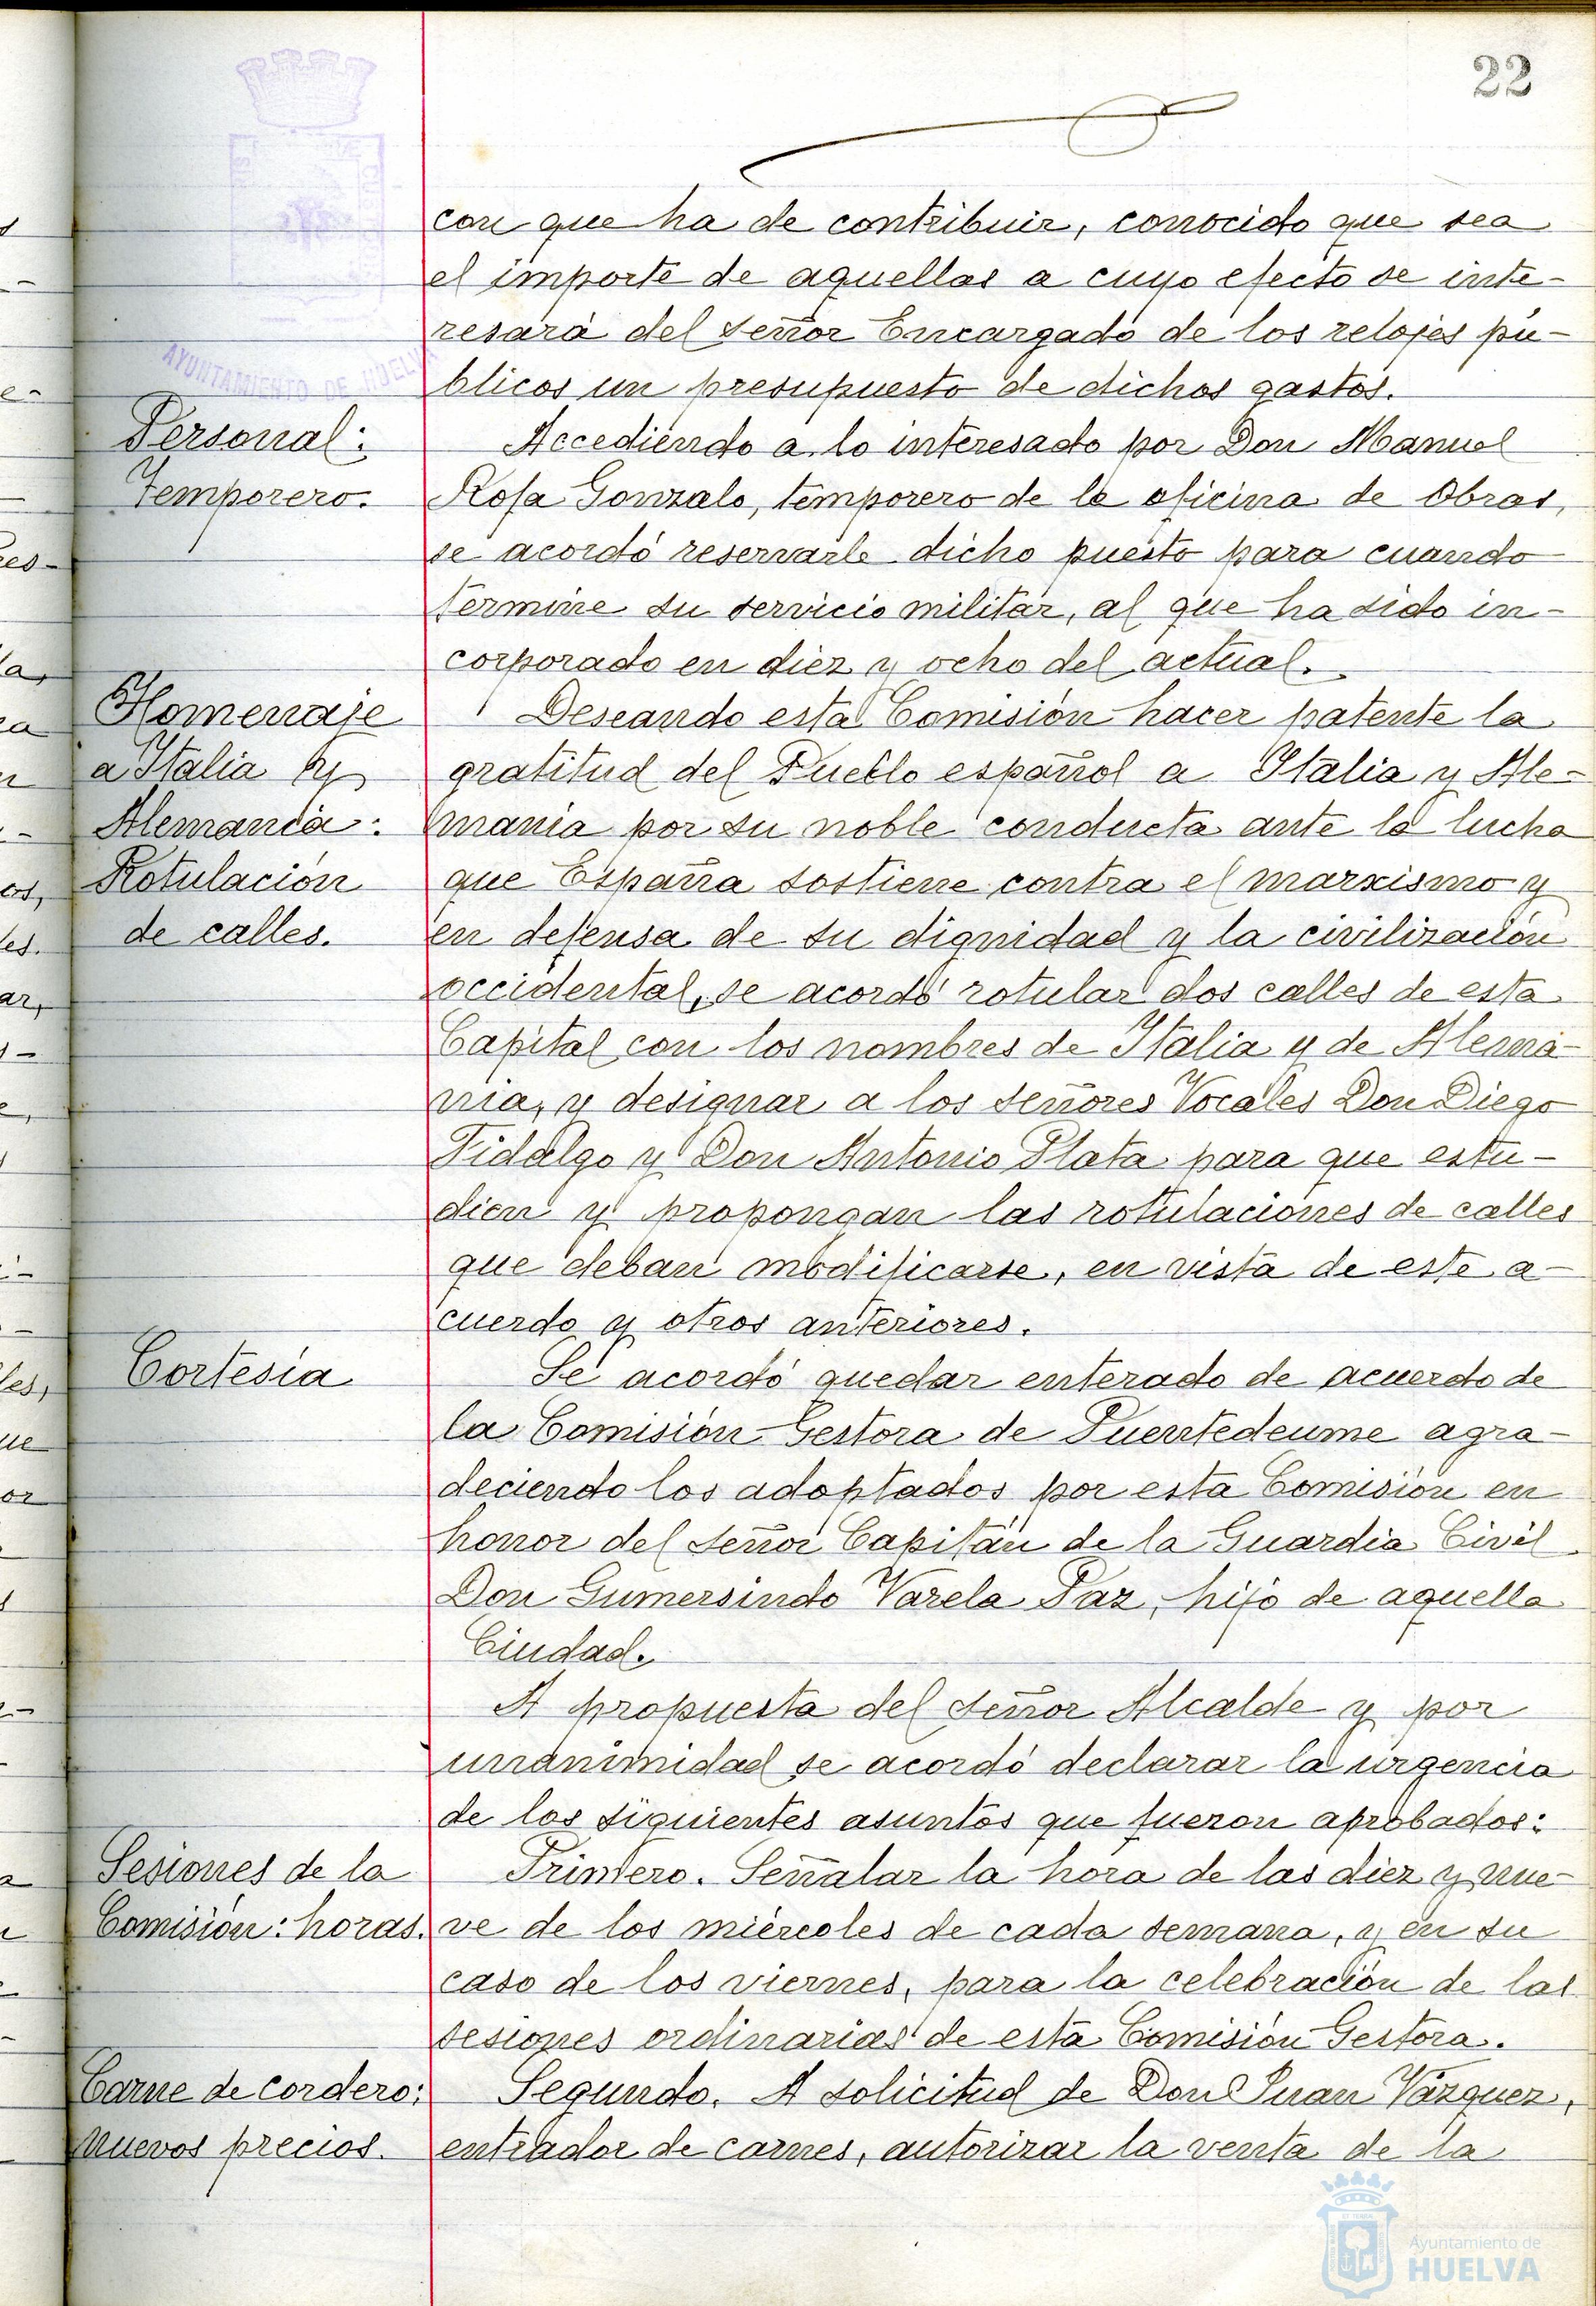 22
con que ha de contribuir, conocido que sea
el importe de aquellas a cuyo efecto se inte-
resará del Señor Encargado de los relojes pú-
blicos un presupuesto de dichos gastos.
Personal:
Temporero.
Accediendo a lo interesado por Don Manuel
Rosa Gonzalo, temporero de la oficina de Obras,
se acordó reservarle dicho puesto para cuando
termine su servicio militar, al que ha sido in-
corporado en diez y ocho del actual.
Homenaje
a Italia y
Alemania:
Rotulación
de calles.
Deseando esta Comisión hacer patente la
gratitud del Pueblo español a Italia y Ale-
mania por su noble conducta ante la lucha
que España sostiene contra el marxismo y
en defensa de su dignidad y la civilización
occidental, se acordó rotular dos calles de esta
Capital con los nombres de Italia y de Alema-
nia, y designar a los Señores Vocales Don Diego
Fidalgo y Don Antonio Plata para que estu-
dien y propongan las rotulaciones de calles
que deban modificarse, en vista de este a-
cuerdo y otros anteriores.
Cortesía
Se acordó quedar enterado de acuerdo de
la Comisión Gestora de Puentedeume agra-
deciendo los adoptados por esta Comisión en
honor del Señor Capitán de la Guardia Civil
Don Gumersindo Varela Paz, hijo de aquella
Ciudad.
A propuesta del Señor Alcalde y por
unanimidad se acordó declarar la urgencia
de los siguientes asuntos que fueron aprobados:
Sesiones de la
Comisión: horas.
Primero. Señalar la hora de las diez y nue-
ve de los miércoles de cada semana, y en su
caso de los viernes, para la celebración de las
sesiones ordinarias de esta Comisión Gestora.
Carne de cordero:
nuevos precios.
Segundo. A solicitud de Don Juan Vázquez,
entrador de carnes, autorizar la venta de la
AYUNTAMIENTO DE HUELVA
Ayuntamiento de
HUELVA